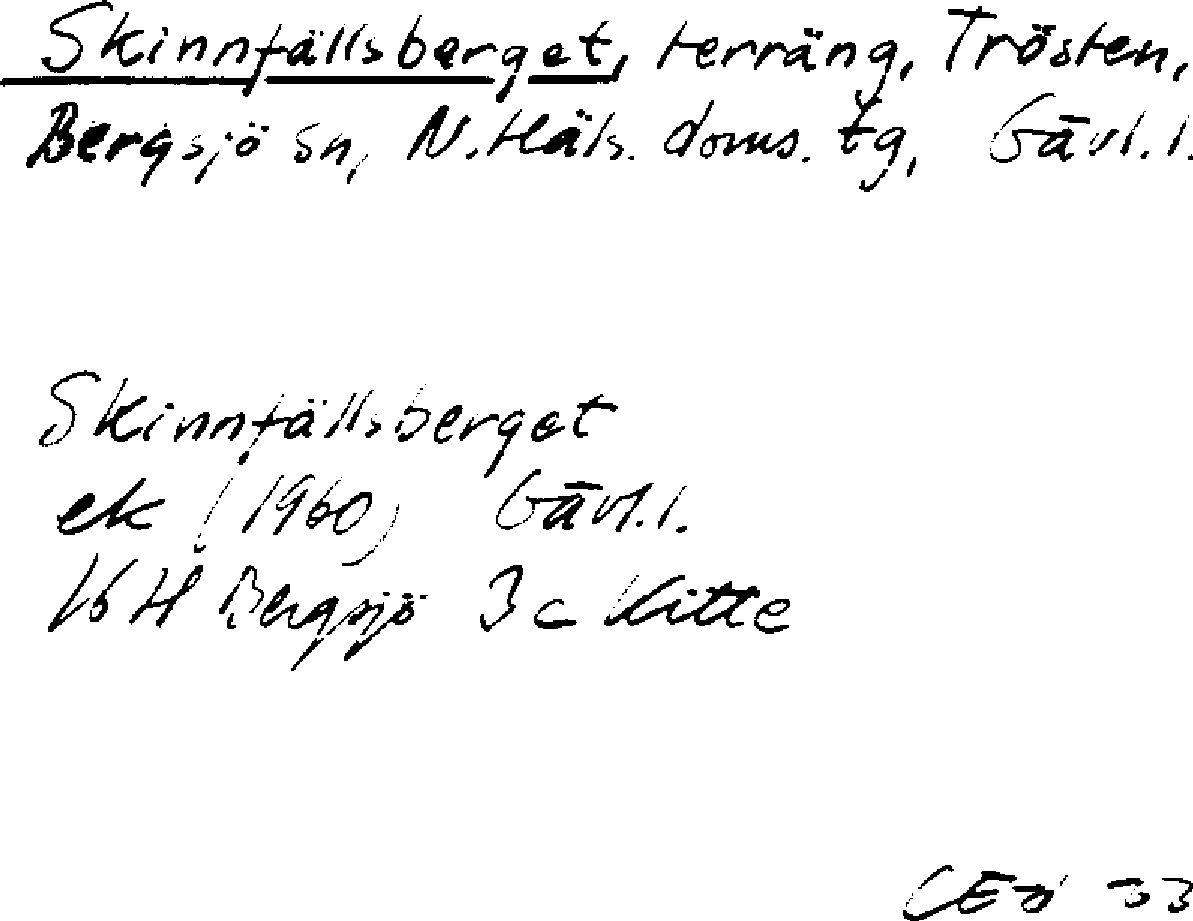 Skinnfällsberget, terräng, Trösten,
Bergsjö sn, N. Häls. doms. tg, Gävl. l.
Skinnfällsberget
ek (1960) Gävl. l.
16 H Bergsjö 3 c Kitte